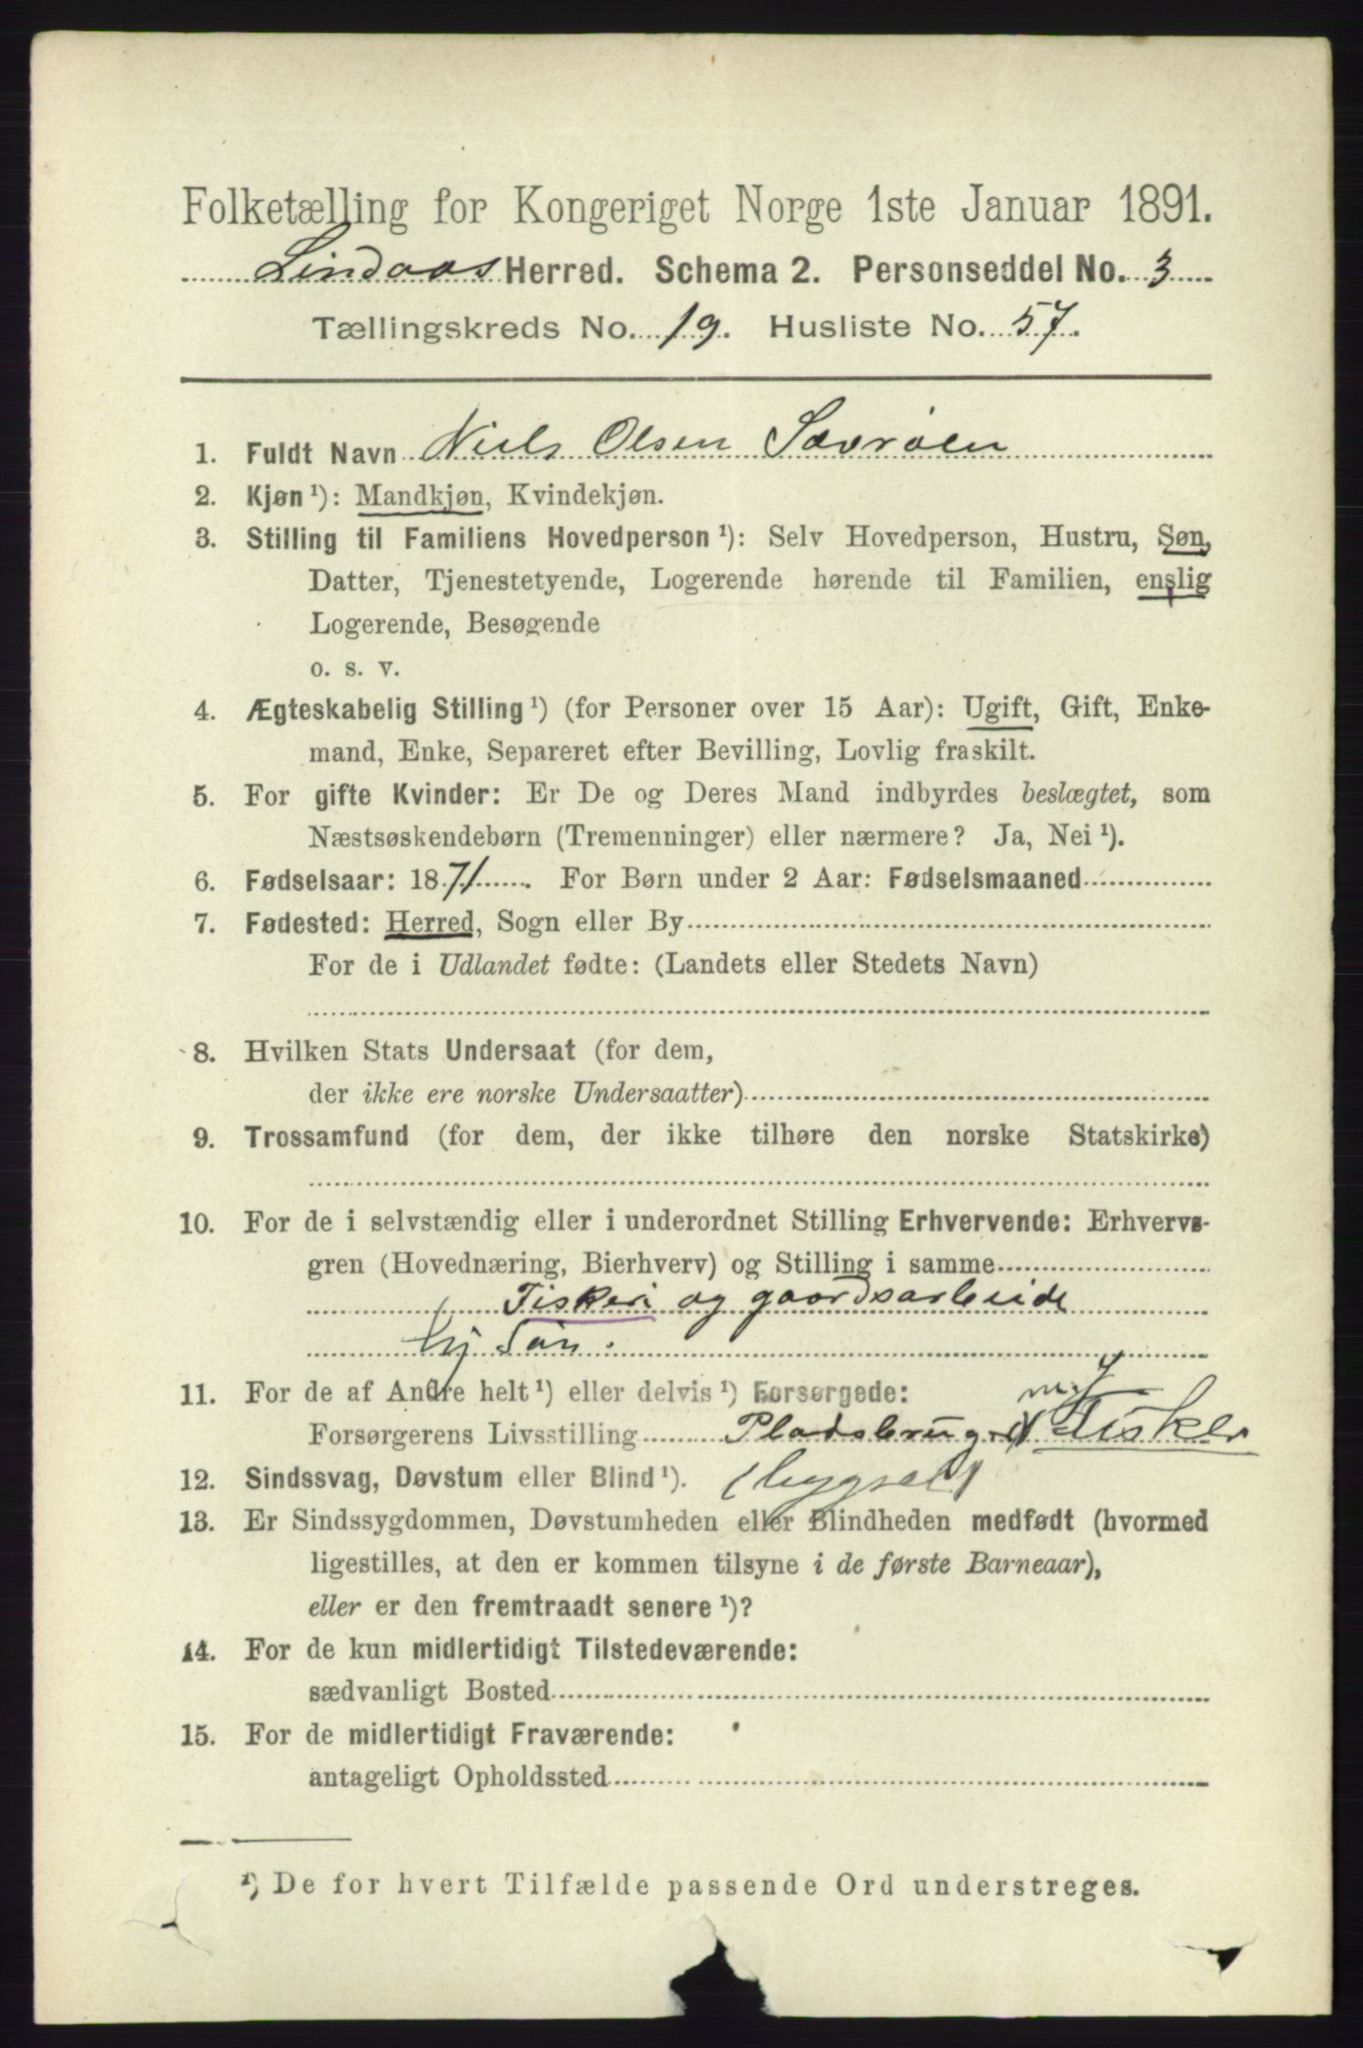 Folketælling for Kongeriget Norge 1ste Januar 1891.
Lindaas Herred. Schema 2. Personseddel No. 3
Tællingskreds No. 19. Husliste No. 57.
1. Fuldt Navn Niels Olsen Sævrøen
2. Kjøn ¹): Mandkjøn, Kvindekjøn.
3. Stilling til Familiens Hovedperson ¹): Selv Hovedperson, Hustru, Søn,
Datter, Tjenestetyende, Logerende hørende til Familien, enslig
Logerende, Besøgende
o. s. v.
4. Ægteskabelig Stilling ¹) (for Personer over 15 Aar): Ugift, Gift, Enke-
mand, Enke, Separeret efter Bevilling, Lovlig fraskilt.
5. For gifte Kvinder: Er De og Deres Mand indbyrdes beslægtet, som
Næstsøskendebørn (Tremenninger) eller nærmere? Ja, Nei ¹).
6. Fødselsaar: 1871. For Børn under 2 Aar: Fødselsmaaned
7. Fødested: Herred, Sogn eller By
For de i Udlandet fødte: (Landets eller Stedets Navn)
8. Hvilken Stats Undersaat (for dem,
der ikke ere norske Undersaatter)
9. Trossamfund (for dem, der ikke tilhøre den norske Statskirke)
10. For de i selvstændig eller i underordnet Stilling Erhvervende: Erhvervs-
gren (Hovednæring, Bierhverv) og Stilling i samme
Fiskeri og gaardsarbeide
Søn.
11. For de af Andre helt ¹) eller delvis ¹) Forsørgede:
Forsørgerens Livsstilling Pladsbruger Fisker
12. Sindssvag, Døvstum eller Blind ¹). (bygsel)
13. Er Sindssygdommen, Døvstumheden eller Blindheden medfødt (hvormed
ligestilles, at den er kommen tilsyne i de første Barneaar),
eller er den fremtraadt senere ¹)?
14. For de kun midlertidigt Tilstedeværende:
sædvanligt Bosted
15. For de midlertidigt Fraværende:
antageligt Opholdssted
¹) De for hvert Tilfælde passende Ord understreges.